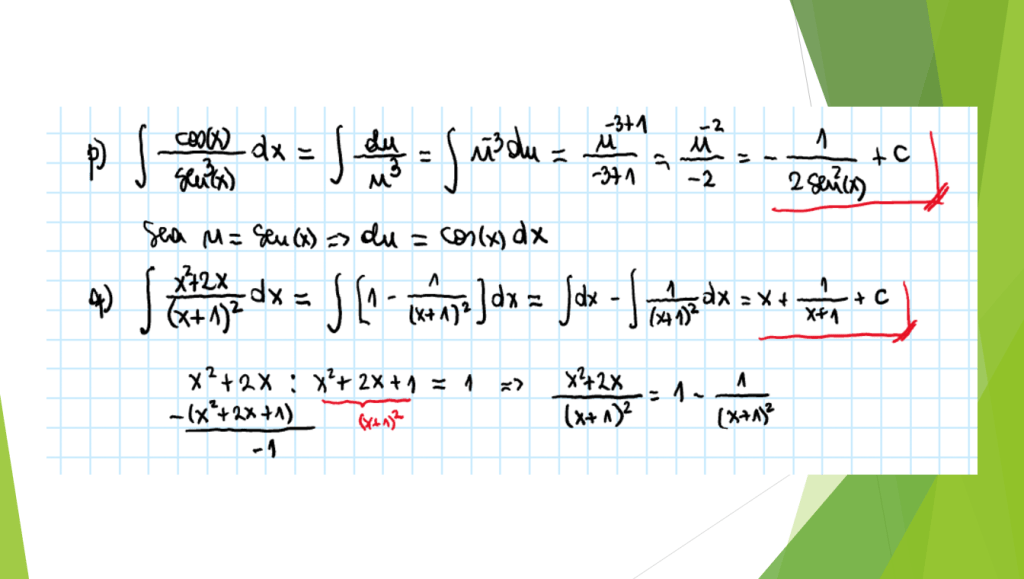 p) ∫ cos(x)/sen³(x) dx = ∫ du/u³ = ∫ u⁻³ du = u⁻³⁺¹/-3+1 = u⁻²/-2 = - 1/2 sen²(x) + C
Sea u = sen(x) => du = cos(x) dx
q) ∫ x²+2x/(x+1)² dx = ∫ [1 - 1/(x+1)²] dx = ∫ dx - ∫ 1/(x+1)² dx = x + 1/x+1 + C
x² + 2x : x² + 2x + 1 = 1 => x²+2x/(x+1)² = 1 - 1/(x+1)²
-(x²+2x+1) (x+1)²
-1